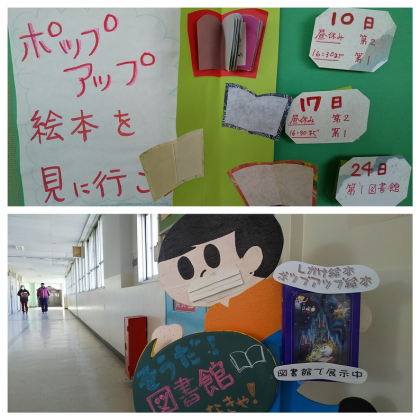 ポップ
アップ
絵本を
見に行こ
10日
昼休み 第2
16:30まで 第1
17日
昼休み 第2
16:30まで 第1
24日
第1図書館
しかけ絵本
ポップアップ絵本
図書館で展示中
そうだ!
図書館